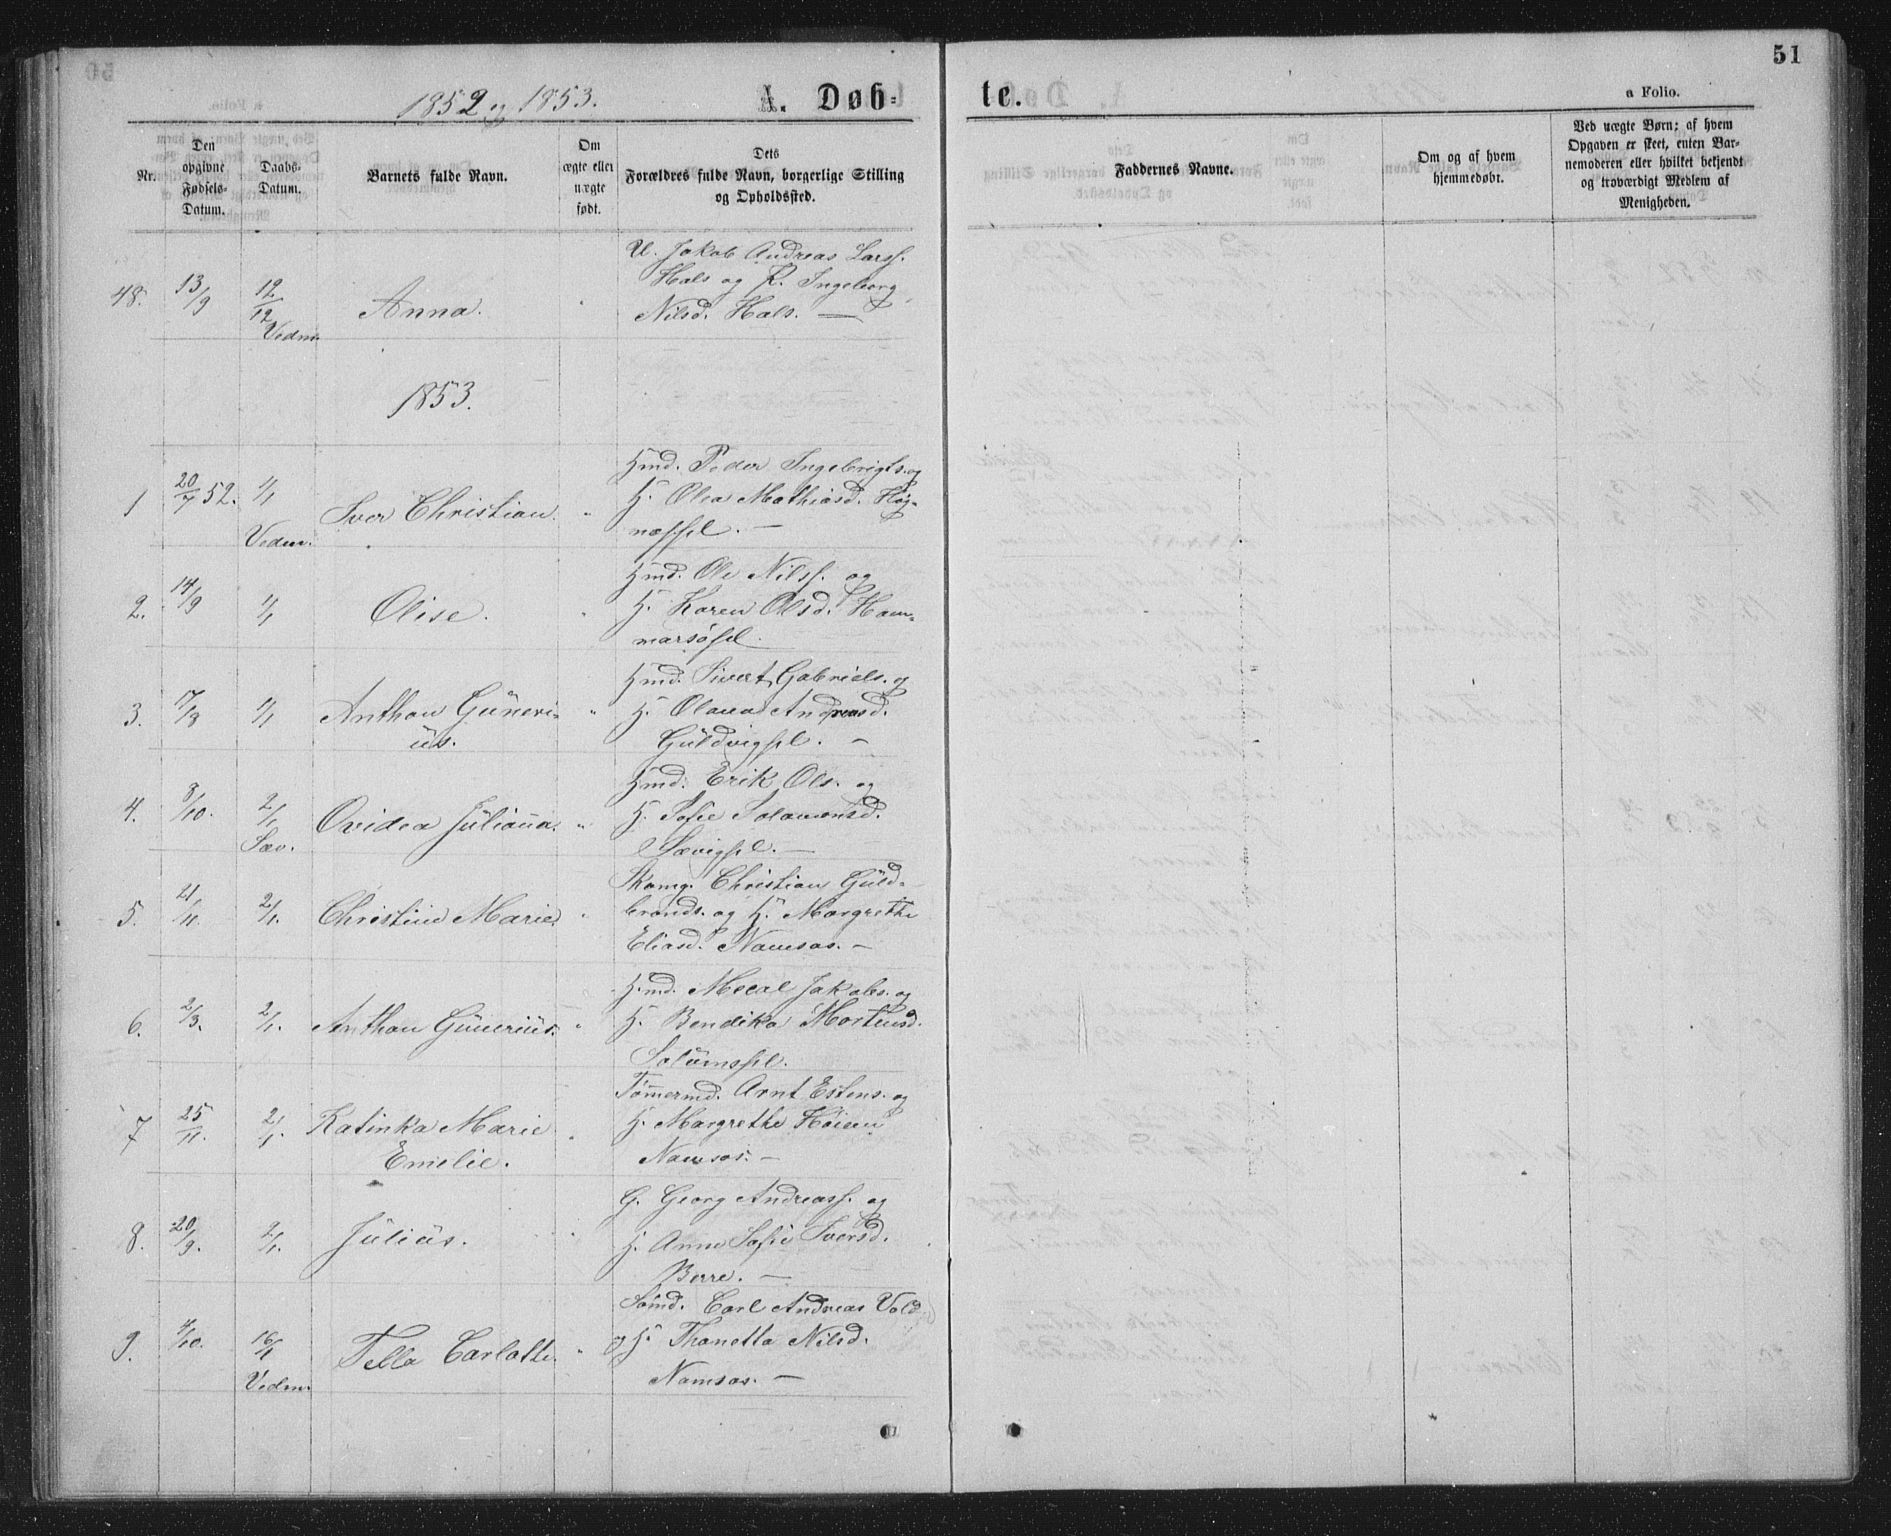 51
1852 og 1853.
A. Døb-
te.
a Folio.
Nr.
Den opgivne Fødsels-Datum.
Daabs-Datum.
Barnets fulde Navn.
Om ægte eller uægte født.
Dets Forældres fulde Navn, borgerlige Stilling og Opholdssted.
Faddernes Navne.
Om og af hvem hjemmedøbt.
Ved uægte Børn; af hvem Opgaven er skeet, enten Barnemoderen eller hvilket bekjendt og troværdigt Medlem af Menigheden.
U. Jakob Andreas Larss.
48. 13/9 12/12 Anna. " Hals og P. Ingeborg
Vedm. Nilsd. Hals. —
1853.
Hmd. Peder Ingebrigts. og
1 20/7 52. 1/1 Iver Christian. " H. Olea Mathiasd. Høg-
Vedm. næssl. —
Hmd. Ole Nilss. og
2. 14/9 1/1 Olise. " H. Karen Olsd. Ham-
marsøsl.
Hmd. Sivert Gabriels. og
3. 17/9 1/1 Anthon Güneri- " H. Olava Andreasd.
üs. Güldvigsl. —
Hmd. Erik Ols. og
4. 8/10. 2/1 Ovidea Jüliana. " H. Sofie Solamonsd.
Sæv. Sævigsl. —
Christian Güld-
5. 21/11. 2/1. Christine Marie " brands. og H. Margrethe
Eliasd. Namsos. —
Hmd. Mecal Jakobs. og
6. 2/9. 2/1. Anthon Günerius. " H. Bendika Mortensd.
Solümssl.
Tømermd. Arnt Estens. og
7 25/11. 2/1. Katinka Marie " H. Margrethe Høiem
Emelie. Namsos. —
G. Georg Andreass. og
8. 20/9. 2/1. Jülius. H. Anne Sofie Iversd.
Berre. —
Sømd. Carl Andreas Vold
9. 4/10. 16/1 Tella Carlotte. " og H. Thanetta Nilsd.
Vedm. Namsos. —